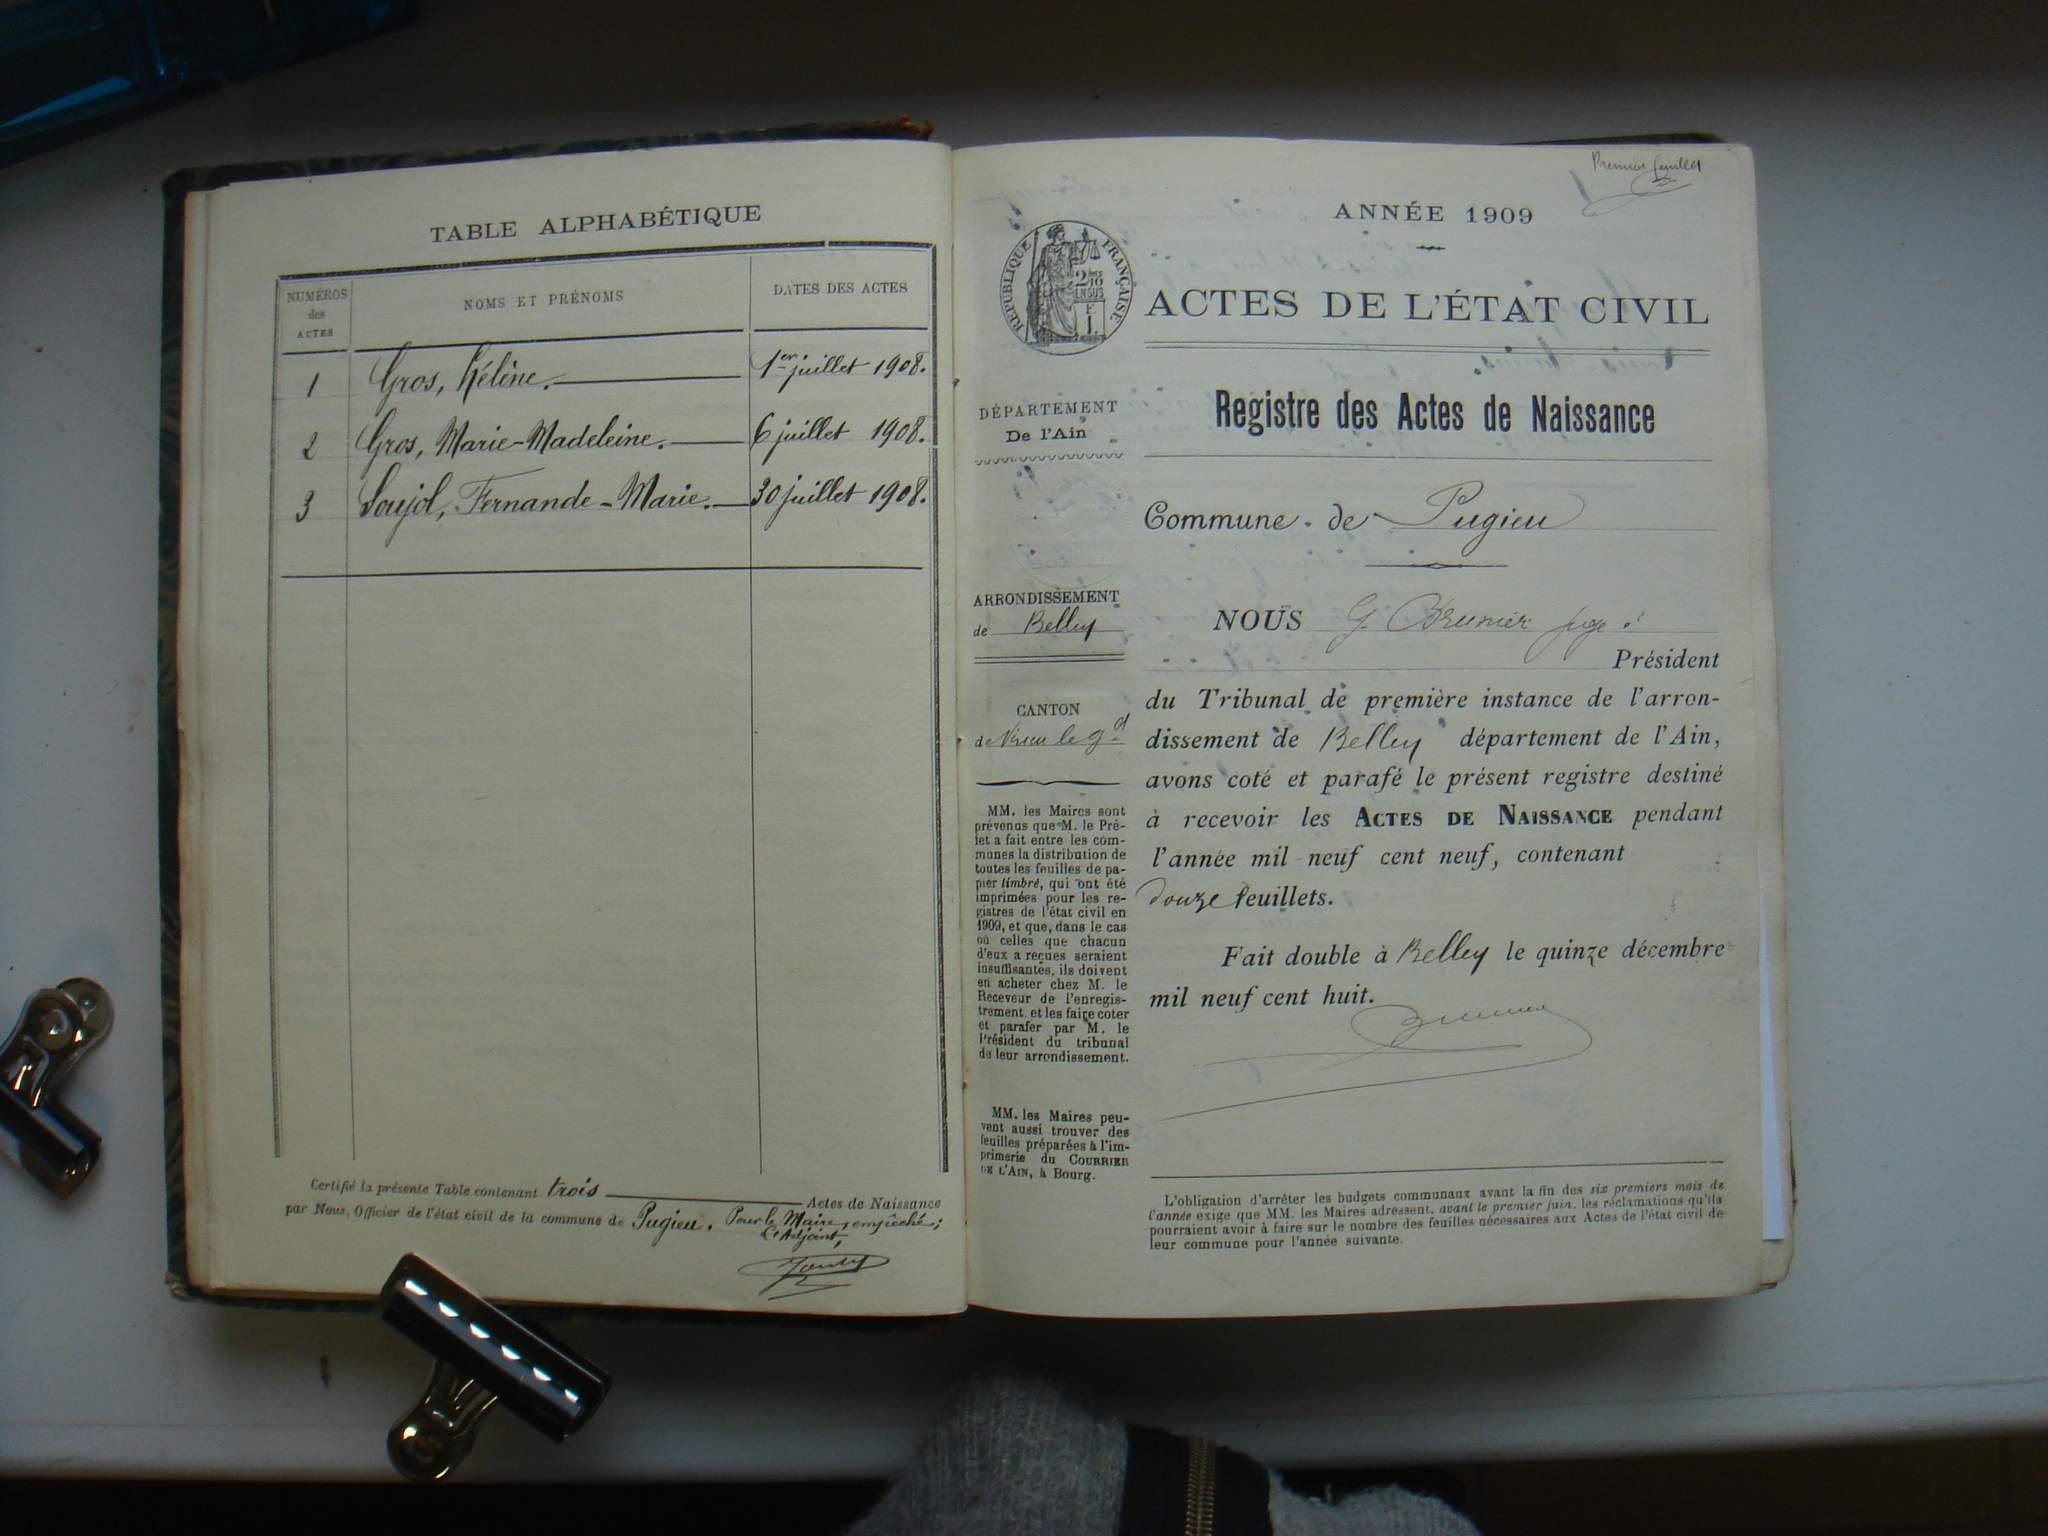 TABLE ALPHABÉTIQUE
NUMÉROS des ACTES
NOMS ET PRÉNOMS
DATES DES ACTES
1 Gros, Hélène. 1er juillet 1908.
2 Gros, Marie-Madeleine. 6 juillet 1908.
3 Soujol, Fernande-Marie. 30 juillet 1908.
Certifié la présente Table contenant trois Actes de Naissance
par Nous, Officier de l'état civil de la commune de Pugieu. Pour le Maire, empêché;
L'Adjoint,
Premier feuillet
ANNÉE 1909
RÉPUBLIQUE FRANÇAISE
2/10
EN SUS
ACTES DE L'ÉTAT CIVIL
DÉPARTEMENT
De l'Ain
ARRONDISSEMENT
de Belley
CANTON
de Virieu le Gd
MM. les Maires sont
prévenus que M. le Pré-
fet a fait entre les com-
munes la distribution de
toutes les feuilles de pa-
pier timbré, qui ont été
imprimées pour les re-
gistres de l'état civil en
1909, et que, dans le cas
où celles que chacun
d'eux a reçues seraient
insuffisantes, ils doivent
en acheter chez M. le
Receveur de l'enregis-
trement et les faire coter
et parafer par M. le
Président du tribunal
de leur arrondissement.
MM. les Maires peu-
vent aussi trouver des
feuilles préparées à l'im-
primerie du COURRIER
DE L'AIN, à Bourg.
Registre des Actes de Naissance
Commune de Pugieu
NOUS G. Brunier juge
Président
du Tribunal de première instance de l'arron-
dissement de Belley département de l'Ain,
avons coté et parafé le présent registre destiné
à recevoir les ACTES DE NAISSANCE pendant
l'année mil neuf cent neuf, contenant
douze feuillets.
Fait double à Belley le quinze décembre
mil neuf cent huit.
Brunier
L'obligation d'arrêter les budgets communaux avant la fin des six premiers mois de
l'année exige que MM. les Maires adressent, avant le premier juin, les réclamations qu'ils
pourraient avoir à faire sur le nombre des feuilles nécessaires aux Actes de l'état civil de
leur commune pour l'année suivante.